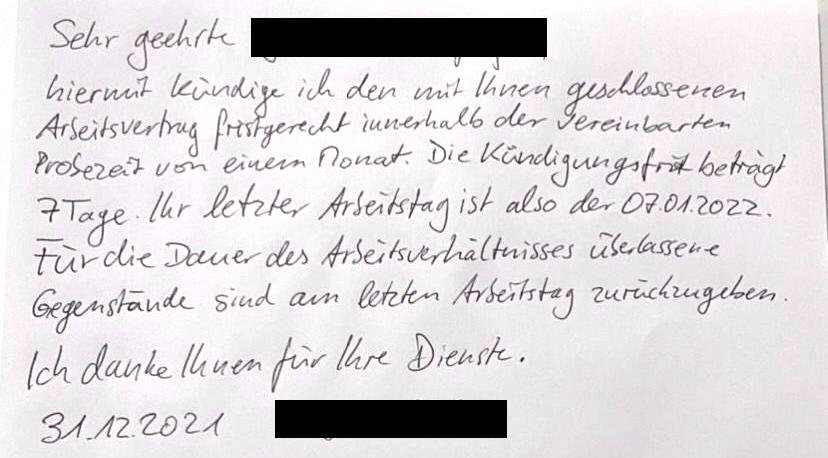 Sehr geehrte
hiermit kündige ich den mit Ihnen geschlossenen
Arbeitsvertrag fristgerecht innerhalb der vereinbarten
Probezeit von einem Monat. Die Kündigungsfrist beträgt
7 Tage. Ihr letzter Arbeitstag ist also der 07.01.2022.
Für die Dauer des Arbeitsverhältnisses überlassene
Gegenstände sind am letzten Arbeitstag zurückzugeben.
Ich danke Ihnen für Ihre Dienste.
31.12.2021